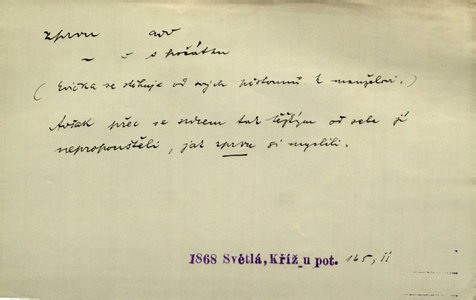 zprvu adv
– = s počátku
(Evička se stěhuje od svých pěstounů k manželovi.)
Avšak přec se srdcem tak těžkým od sebe jí
nepropouštěli, jak zprvu si myslili.
1868 Světlá, Kříž_u pot. 165, II